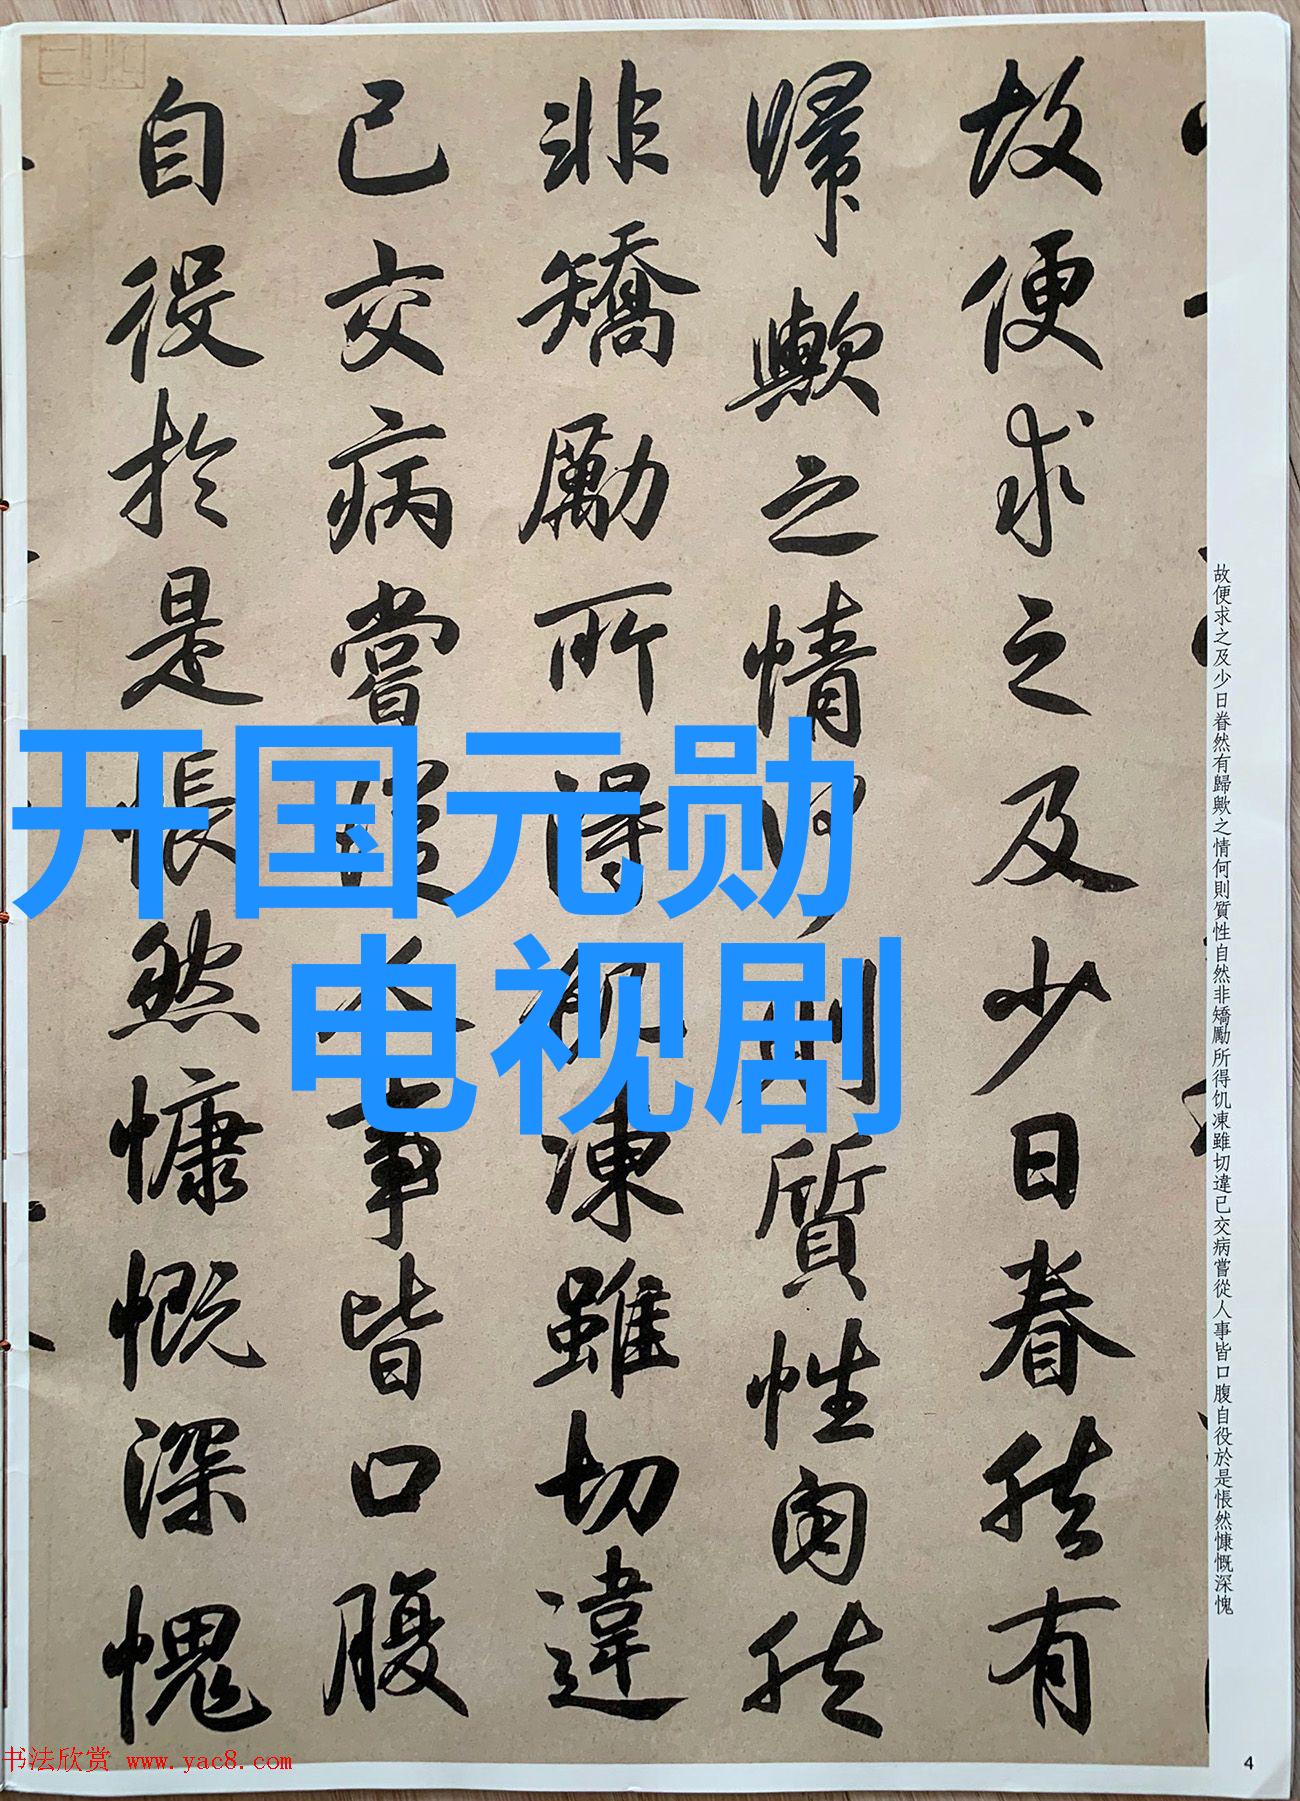 故便求之及少日眷然有
歸歟之情何則質性自然
非矯勵所得飢凍雖切違
己交病嘗從人事皆口腹
自役於是悵然慷慨深愧
故便求之及少日眷然有歸歟之情何則質性自然非矯勵所得饥凍雖切違已交病嘗從人事皆口腹自役於是悵然慷慨深愧
开国元勋
电视剧
书法欣赏 www.yac8.com
4